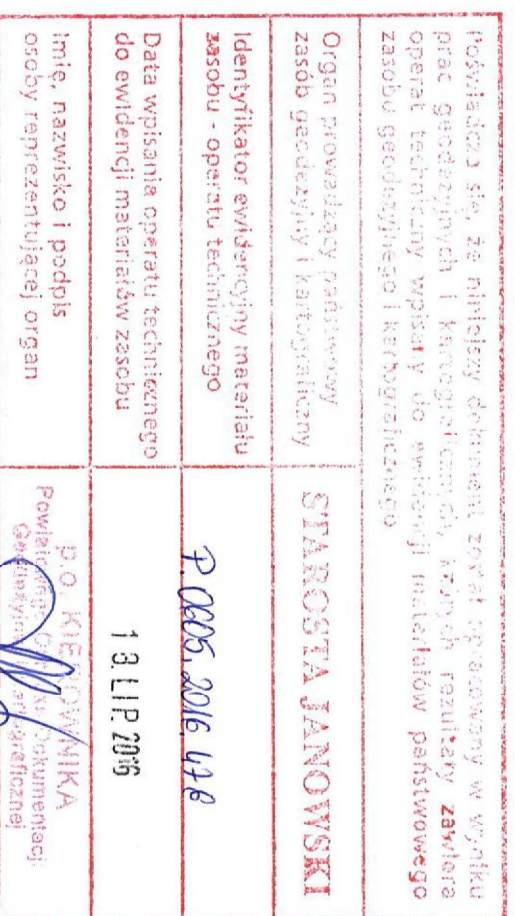 Poświadcza się, że niniejszy dokument został opracowany w wyniku
prac geodezyjnych i kartograficznych, których rezultaty zawiera
operat techniczny wpisany do ewidencji materiałów państwowego
zasobu geodezyjnego i kartograficznego
Organ prowadzący państwowy
zasób geodezyjny i kartograficzny
STAROSTA JANOWSKI
Identyfikator ewidencyjny materiału
zasobu - operatu technicznego
P.0605.2016.478
Data wpisania operatu technicznego
do ewidencji materiałów zasobu
18. LIP. 2016
Imię, nazwisko i podpis
osoby reprezentującej organ
p.o. KIEROWNIKA
Powiatowego Dokumentacji
Geodezyjno Kartograficznej